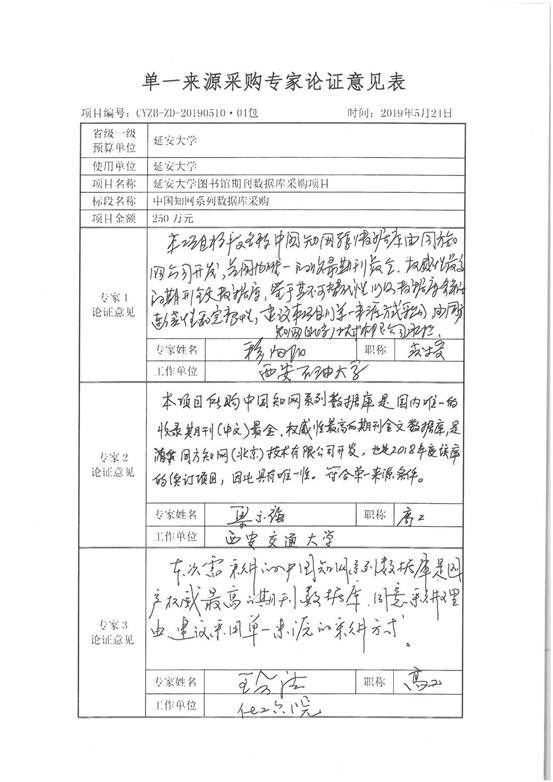 单一来源采购专家论证意见表
项目编号：CYZB-ZD-20190510·01包 时间：2019年5月21日
省级一级预算单位 延安大学
使用单位 延安大学
项目名称 延安大学图书馆期刊数据库采购项目
标段名称 中国知网系列数据库采购
项目金额 250 万元
专家 1 论证意见
中国知网 数据库由同方知
网公司开发，是国内唯一的收录期刊最全、权威性最高
的期刊全文数据库，鉴于其不可替代性
建议 单一来源方式
知网(北京)技术有限公司
专家姓名 职称
工作单位 西安石油大学
专家 2 论证意见
本项目所购中国知网系列数据库是国内唯一的
收录期刊(中文)最全、权威性最高的期刊全文数据库，是
同方知网(北京)技术有限公司开发，也是2018年度该库
的续订项目，因此具有唯一性。符合单一来源条件。
专家姓名 职称 高工
工作单位 西安交通大学
专家 3 论证意见
本次需采购的中国知网系列数据库是国
产权威最高的期刊数据库，同意采购理
由，建议采用单一来源的采购方式。
专家姓名 职称 高工
工作单位